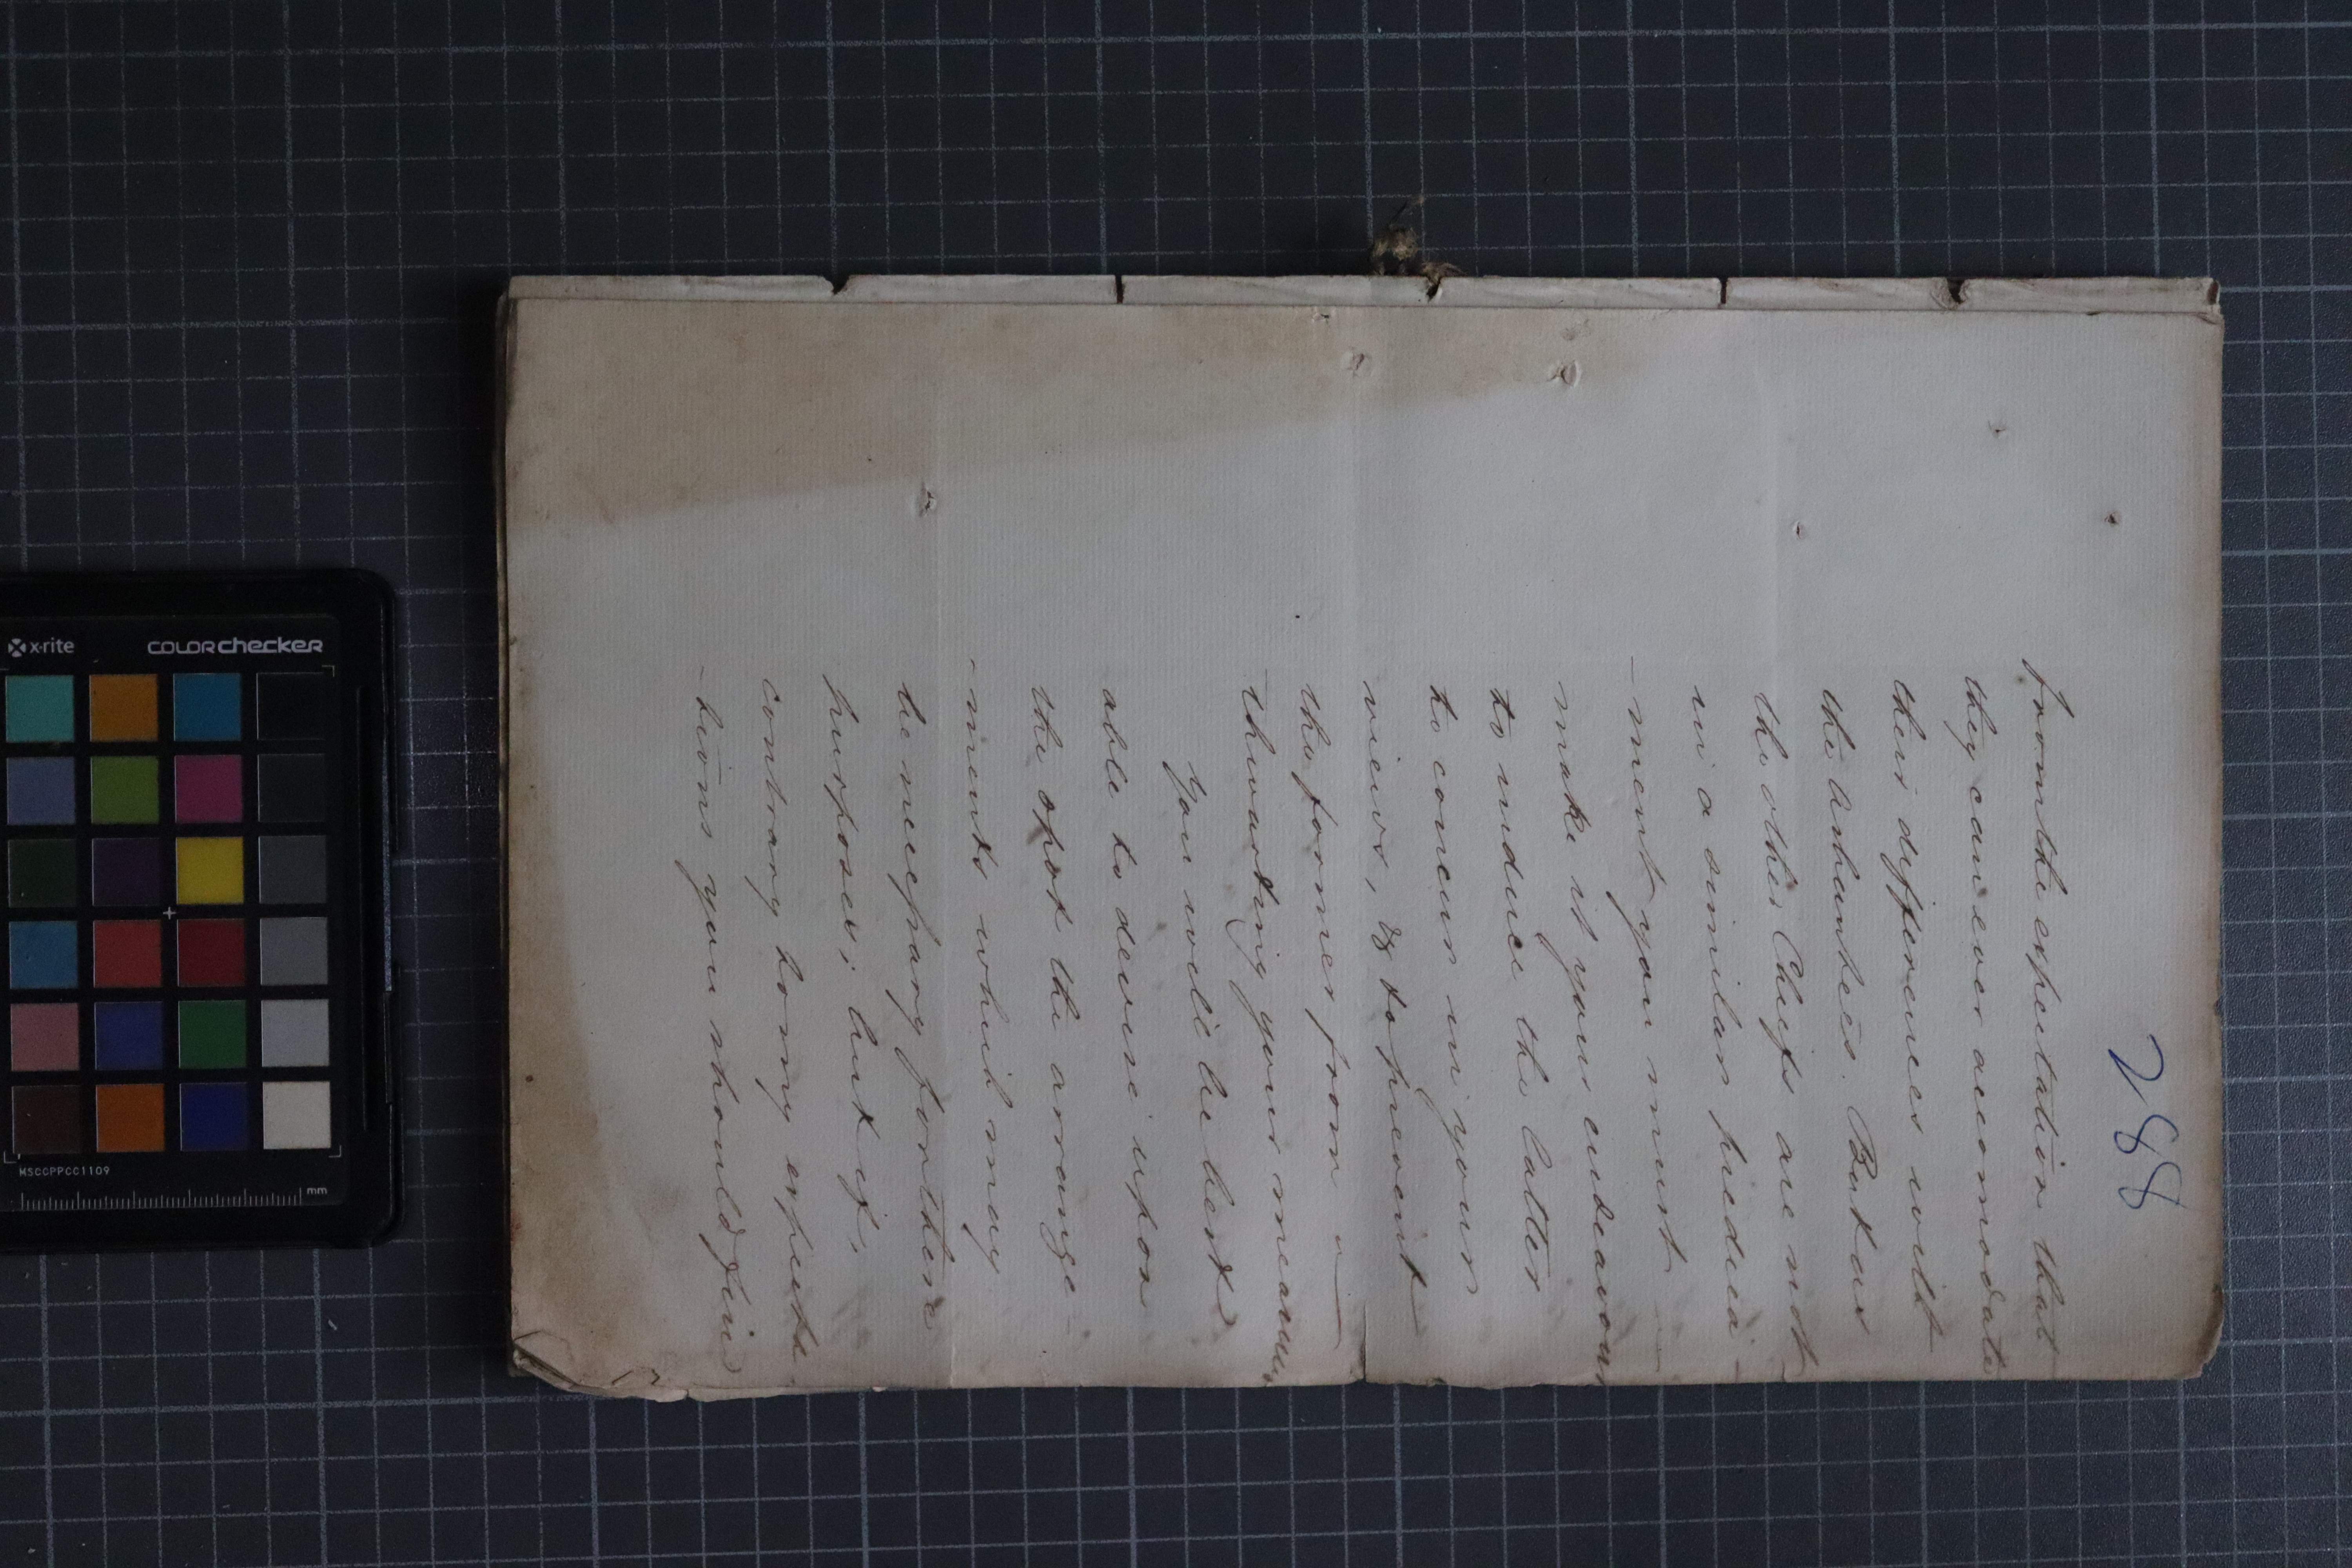 288
from the expectation that
they can ever accomodate
their differences with
the Ashantees. But as
the other Chiefs are not
in a similar predica-
-ment you must
make it your endeavour
to induce the latter
to concur in your
views, & to prevent
the former from
thwarting your measures
You will be best
able to devise upon
the spot the arrange-
-ments which may
be necessary for these
purposes; but if,
contrary to my expecta-
-tions you should find
x-rite
COLOR checker
MSCCPPCC1109
mm